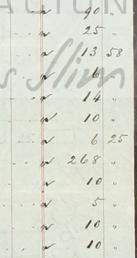 ACION
" 90
" 25
" 13 58
" 6 "
" 14 "
" 10 "
" 6 25
" 268 "
" 10 "
" 5 "
" 10 "
" 10 "